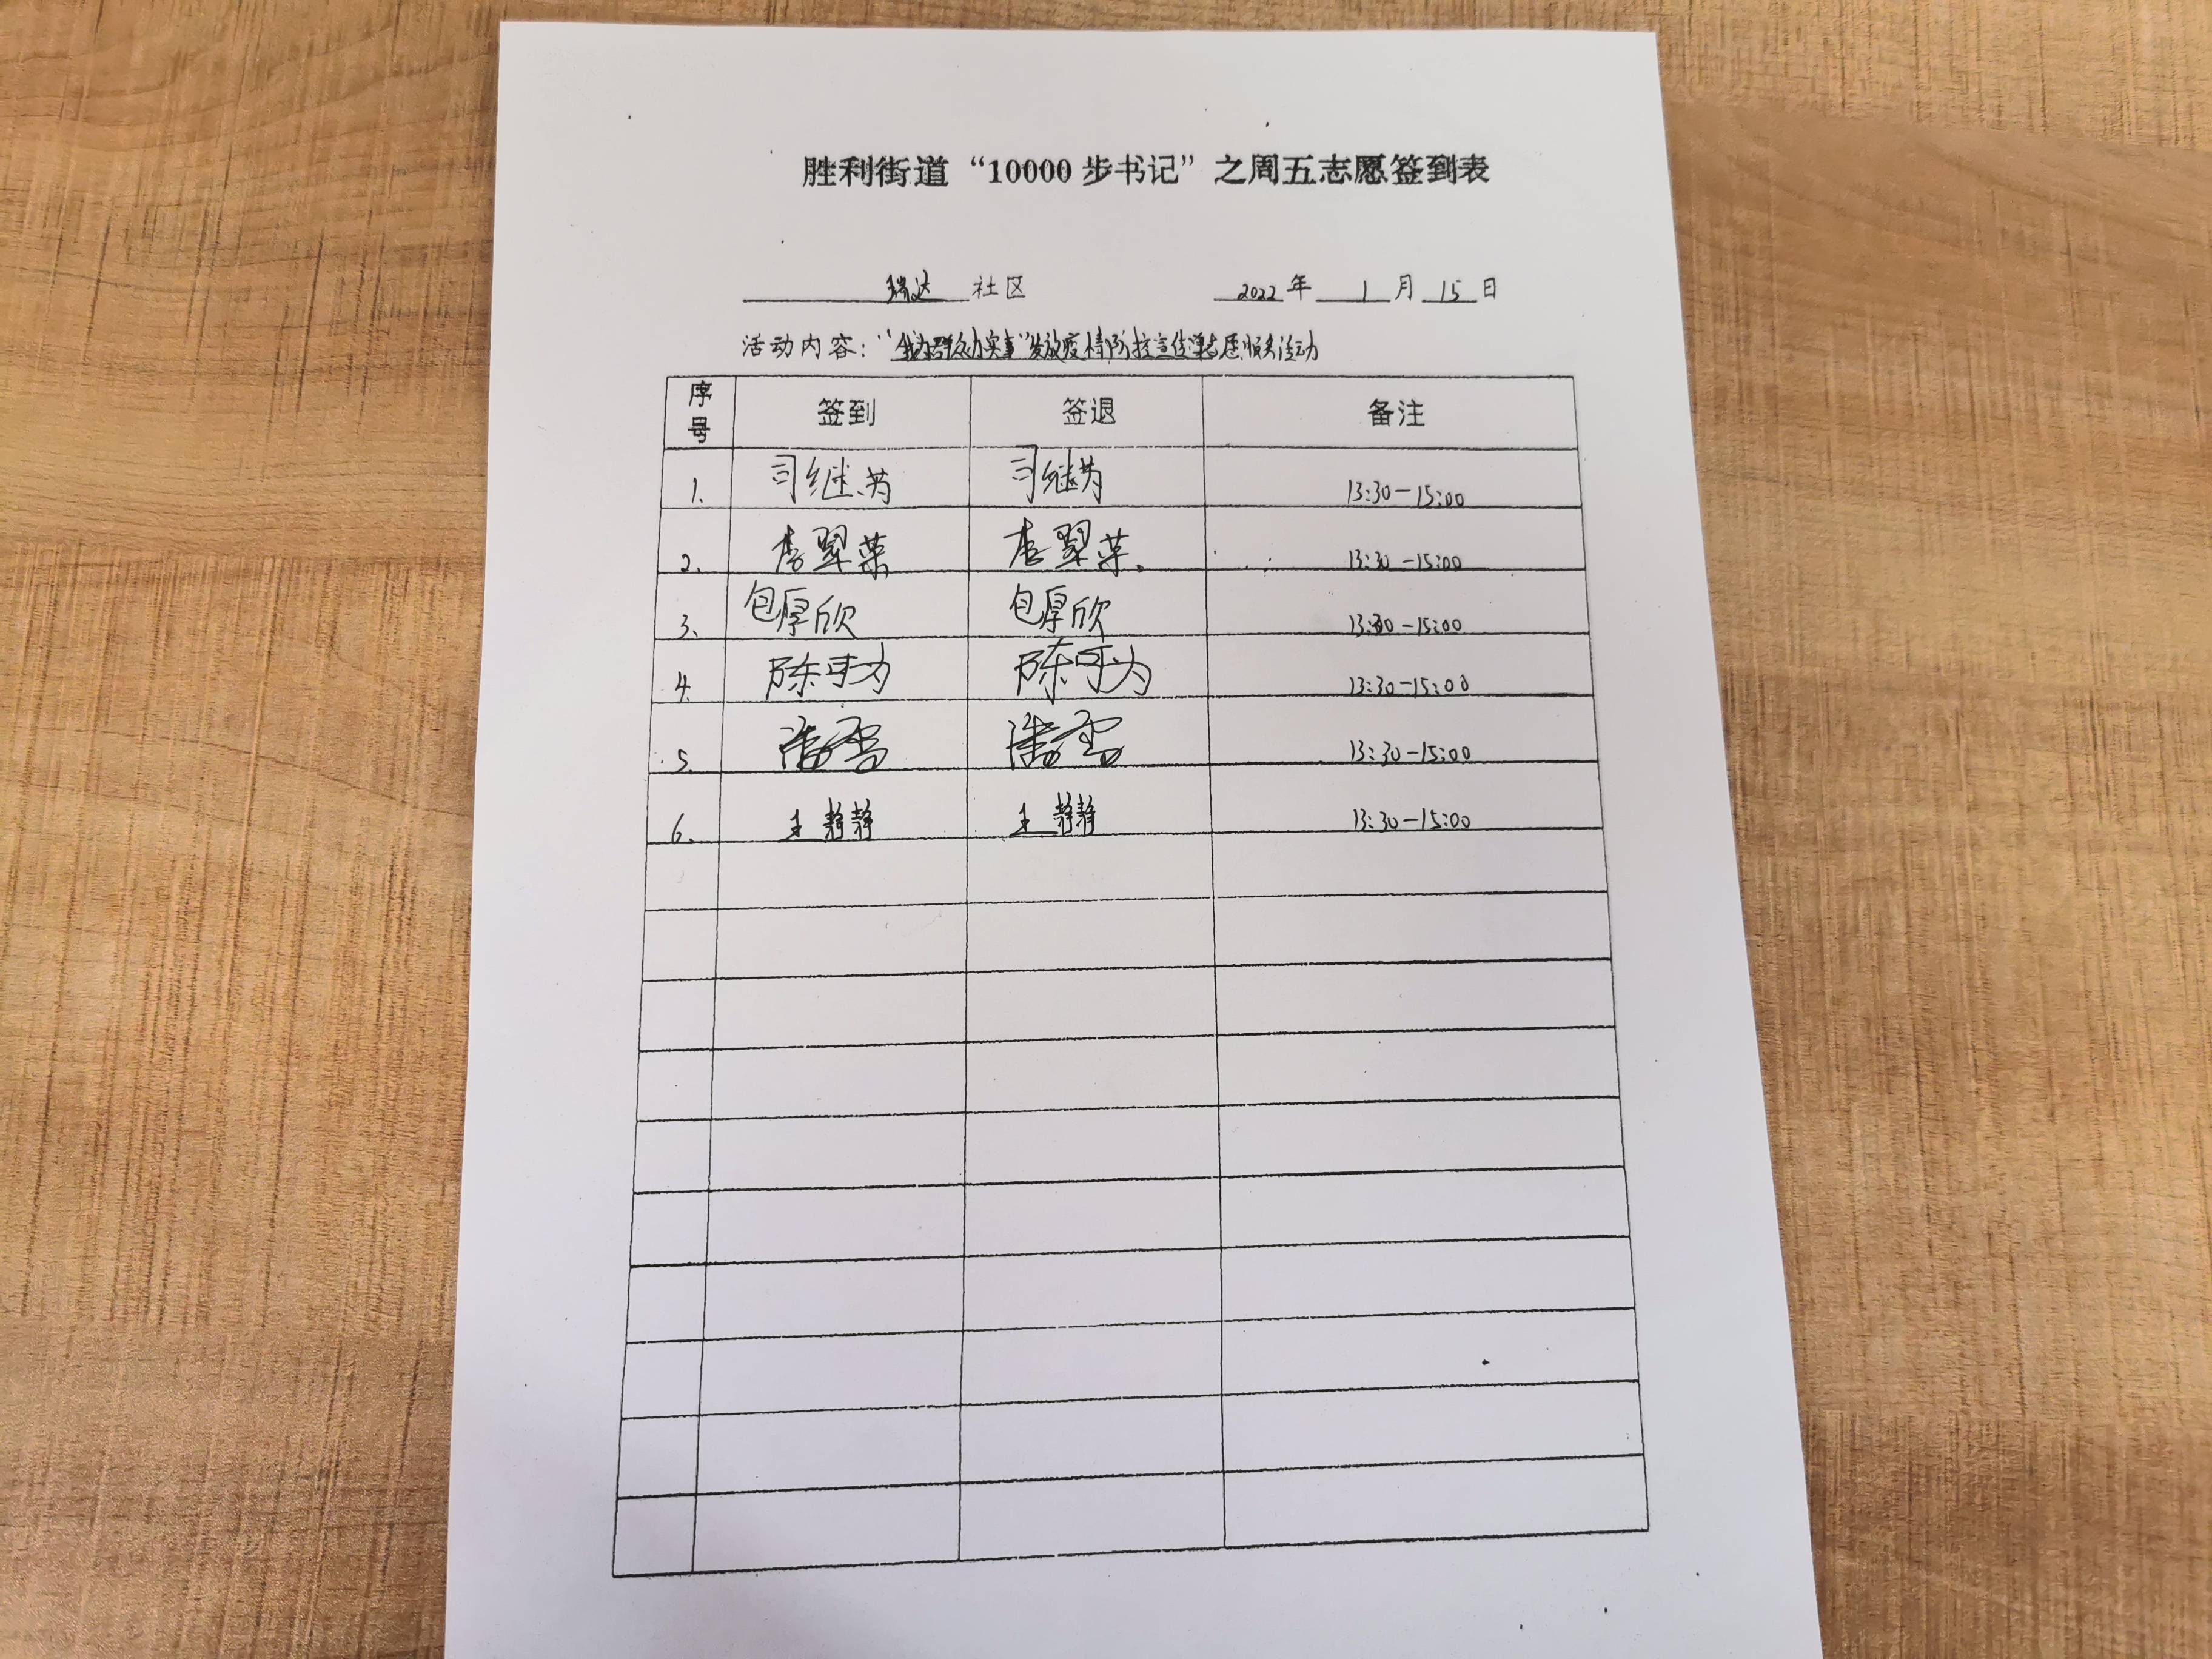 胜利街道“10000步书记”之周五志愿签到表
瑞达 社区 2022 年 1 月 15 日
活动内容：“我为群众办实事”发放疫情防控宣传单志愿服务活动
序号 签到 签退 备注
1. 司继芳 司继芳 13:30-15:00
2、 李翠荣 李翠荣。 13:30-15:00
3、 包厚欣 包厚欣 13:30-15:00
4. 陈可为 陈可为 13:30-15:00
5. 潘雪 潘雪 13:30-15:00
6、 王静静 王静静 13:30-15:00